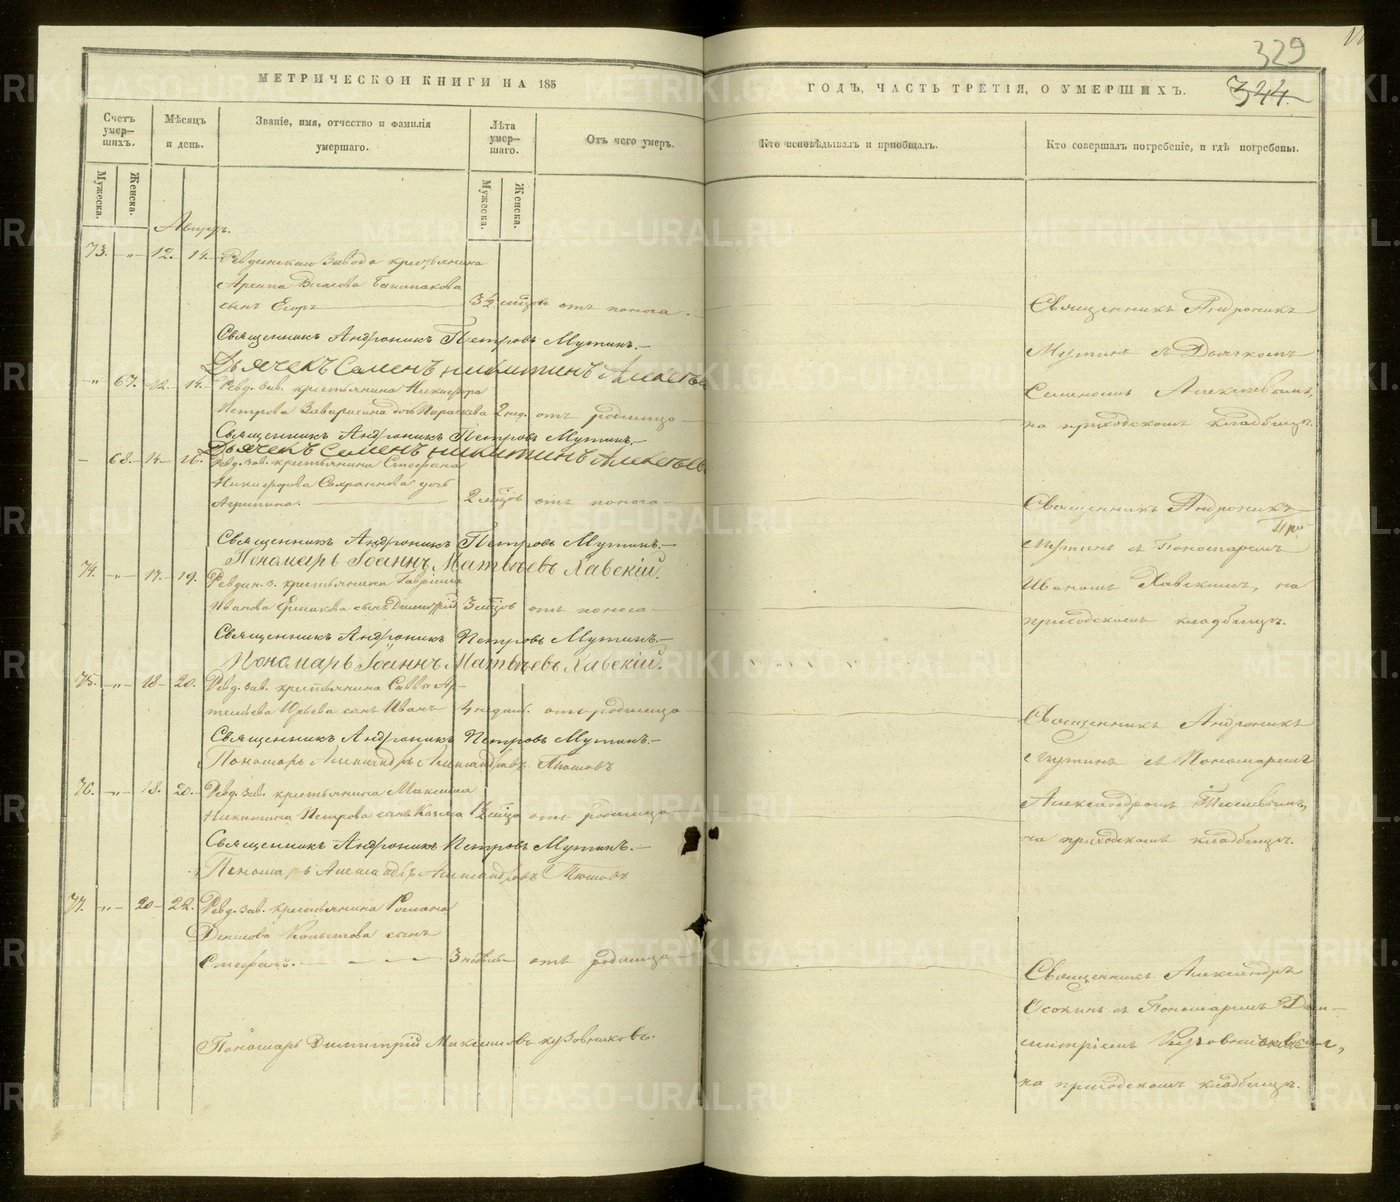 329
344
МЕТРИЧЕСКОИ КНИГИ НА 185
ГОДЪ, ЧАСТЬ ТРЕТІЯ, О УМЕРШИХЪ.
Счетъ умер-шихъ.
Мѣсяцъ и день.
Званіе, имя, отчество и фамилія умершаго.
Лѣта умер-шаго.
Отъ чего умеръ.
Кто исповѣдывалъ и пріобщалъ.
Кто совершалъ погребеніе, и гдѣ погребены.
Мужеска.
Женска.
Мужеска.
Женска.
Августъ.
73. -„- 12. 14. Ревдинскаго Завода крестьянина
сынъ Егоръ 3½ мѣсяца отъ поноса.
Священникъ Андроникъ
Священникъ Андроникъ Петровъ Мутинъ.
Мутинъ съ Дьячкомъ
Дьячекъ Семенъ Никитинъ Алексѣевъ
-„ 67. 12. 14. Ревд. зав. крестьянина Никифора
Семеномъ Алексѣевымъ,
Петрова дочь Параскева 2 нед. отъ родимца
на приходскомъ кладбищѣ.
Священникъ Андроникъ Петровъ Мутинъ.
Дьячекъ Семенъ Никитинъ Алексѣевъ
- 68. 14. 16. Ревд. зав. крестьянина Стефана
Никифорова дочь
Агрипина. 2 мѣсяц. отъ поноса
Священникъ Андроникъ
Священникъ Андроникъ Петровъ Мутинъ.
Мутинъ съ Пономаремъ
Пономарь Іоаннъ Матвѣевъ Хавскій.
74. -„- 17. 19. Ревдин. з. крестьянина Гавріила
Иваномъ Хавскимъ, на
Иванова Ермакова сынъ Димитрій 3 мѣсяцовъ отъ поноса
приходскомъ кладбищѣ.
Священникъ Андроникъ Петровъ Мутинъ.
Пономарь Іоаннъ Матвѣевъ Хавскій.
75. -„- 18. 20. Ревд. зав. крестьянина Саввы Ар-
темьева Юрьева сынъ Иванъ 4 недѣл. отъ родимца
Священникъ Андроникъ
Священникъ Андроникъ Петровъ Мутинъ.
Пономарь Александръ Александровъ
Мутинъ съ Пономаремъ
76. -„- 18. 20. Ревд. зав. крестьянина Максима
Александромъ
Никитина Петрова сынъ Козма 1½ мѣсяца отъ родимца
на приходскомъ кладбищѣ.
Священникъ Андроникъ Петровъ Мутинъ.
Пономарь Александръ Александровъ
77. -„- 20. 22. Ревд. зав. крестьянина Романа
Денисова Копытова сынъ
Стефанъ. 3 недѣли отъ родимца
Священникъ Александръ
Осокинъ съ Пономаремъ Дми-
Пономарь Димитрій Максимовъ Кузовниковъ.
митріемъ Кузовниковымъ,
на приходскомъ кладбищѣ.